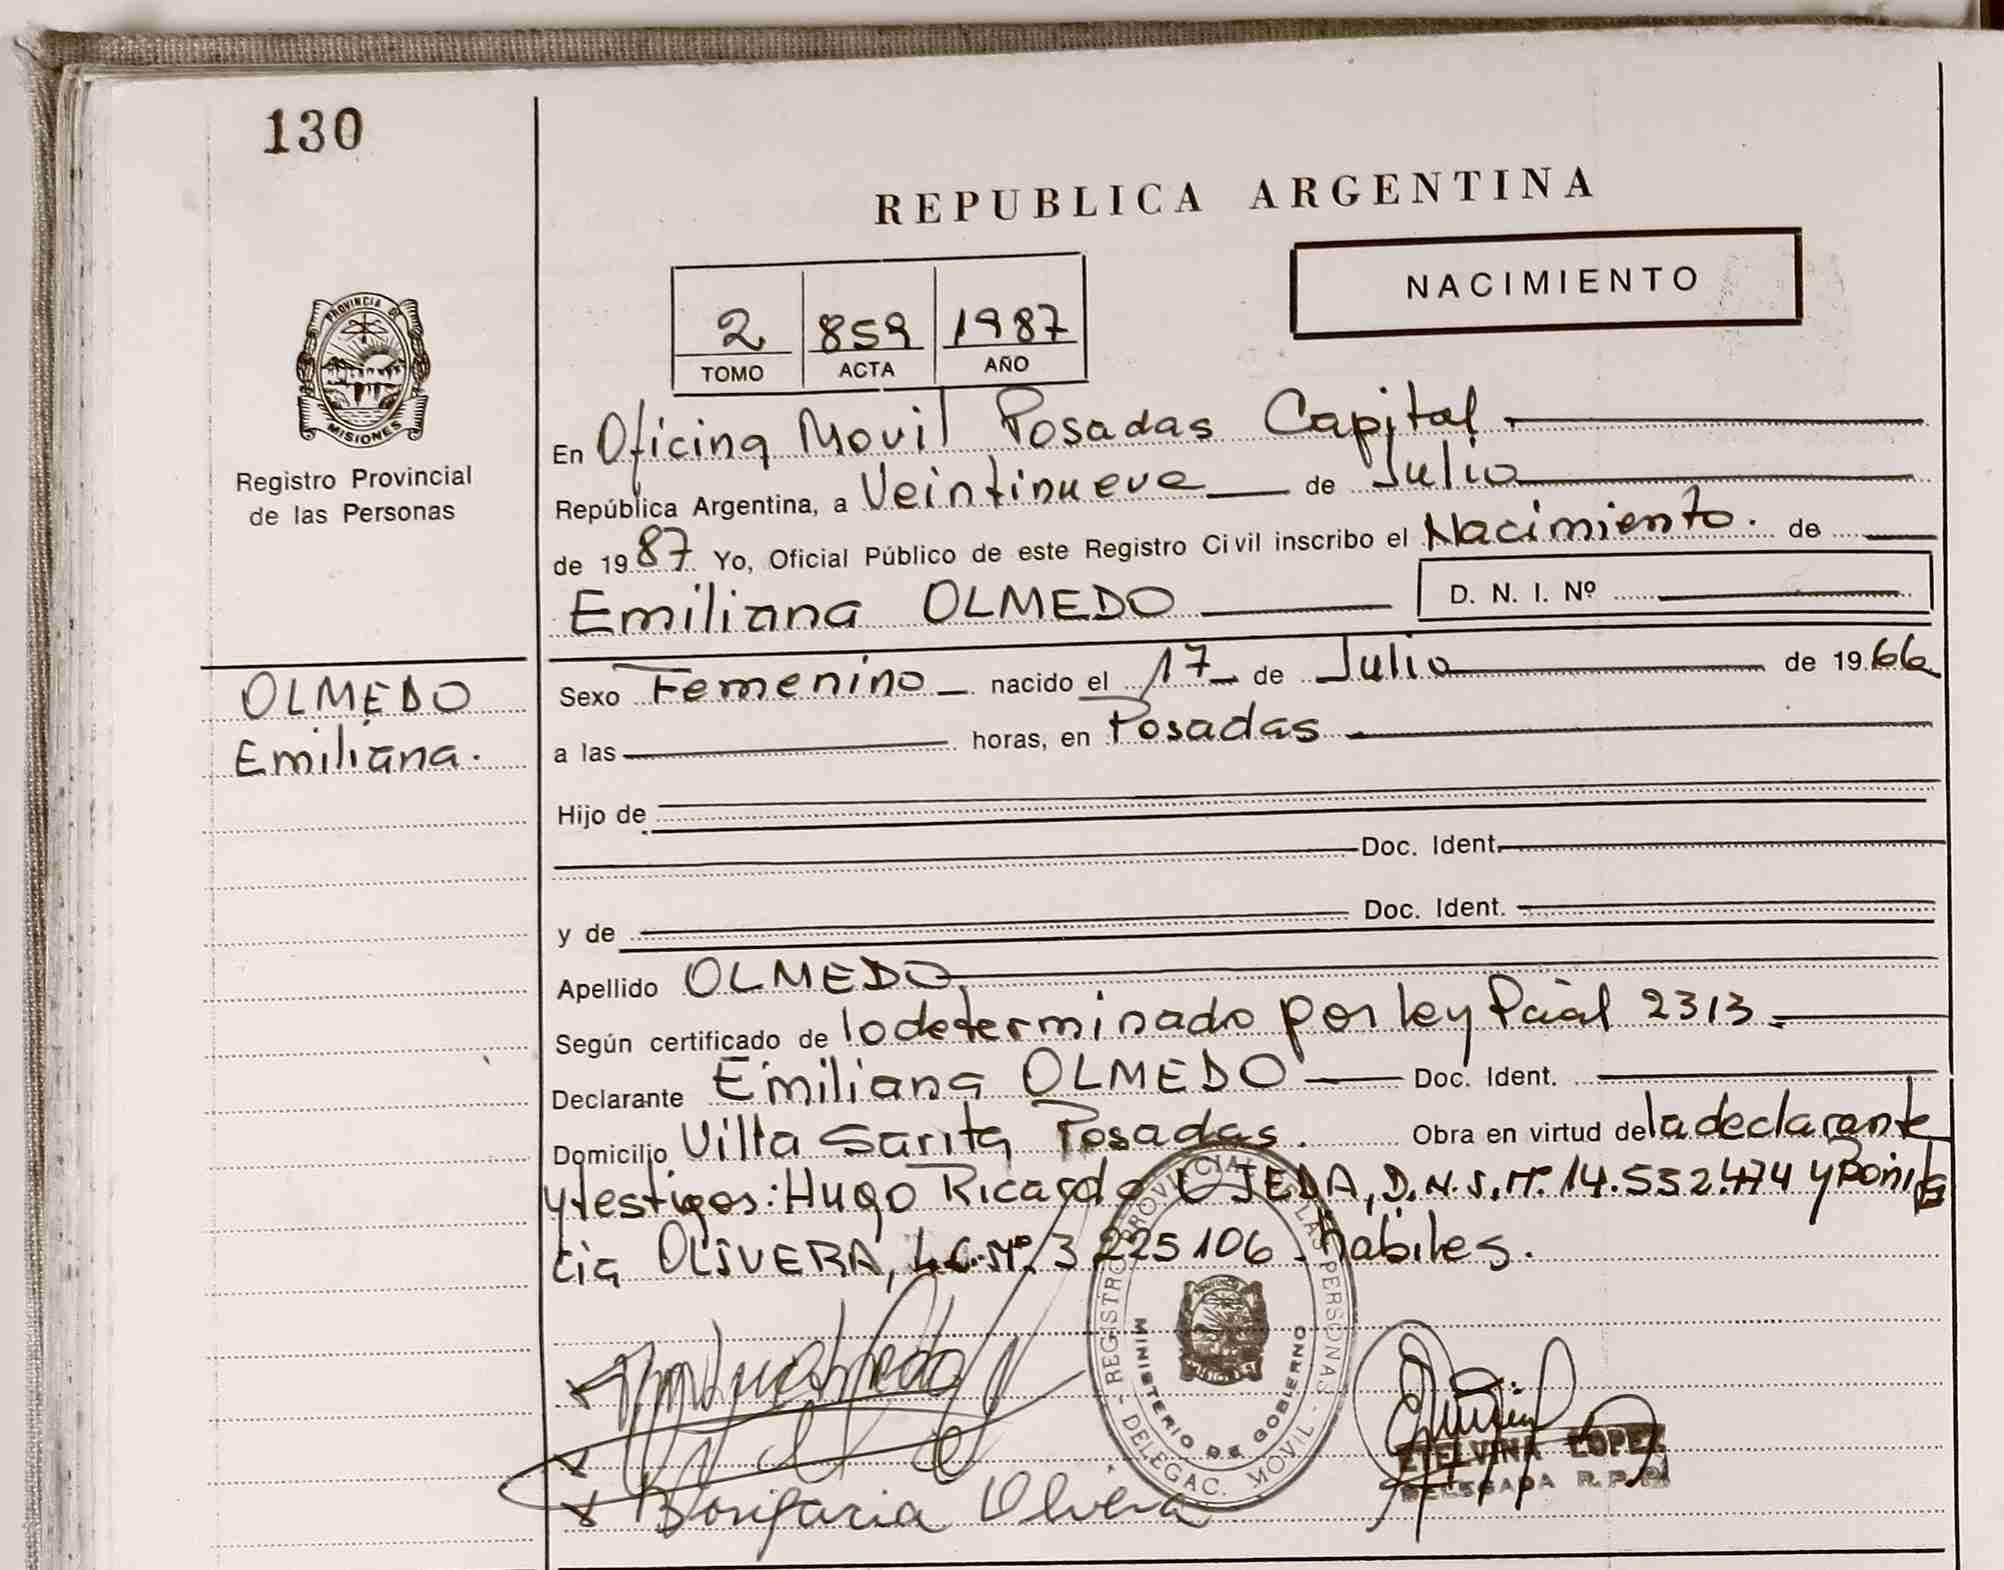 130
REPUBLICA ARGENTINA
NACIMIENTO
2 859 1987
TOMO ACTA AÑO
PROVINCIA DE
MISIONES
Registro Provincial
de las Personas
En Oficina Movil Posadas Capital
República Argentina, a Veintinueve de Julio
de 1987 Yo, Oficial Público de este Registro Civil inscribo el Nacimiento. de
Emiliana OLMEDO D. N. I. Nº
OLMEDO
Emiliana.
Sexo Femenino nacido el 17 de Julio de 1966
a las horas, en Posadas
Hijo de
Doc. Ident.
y de Doc. Ident.
Apellido OLMEDO
Según certificado de lo determinado por ley Pcial 2313
Declarante Emiliana OLMEDO Doc. Ident.
Domicilio Villa Sarita Posadas. Obra en virtud de la declarante
y testigos: Hugo Ricardo OJEDA, D.N.I.Nº 14.552.474 y Bonifa
cia OLIVERA, L.C.Nº 3 225106 habiles.
REGISTRO PROVINCIAL DE LAS PERSONAS - DELEGAC. MOVIL -
MINISTERIO DE GOBIERNO
Bonifacia Olivera
ETELVINA LOPEZ
DELEGADA R.P.P.